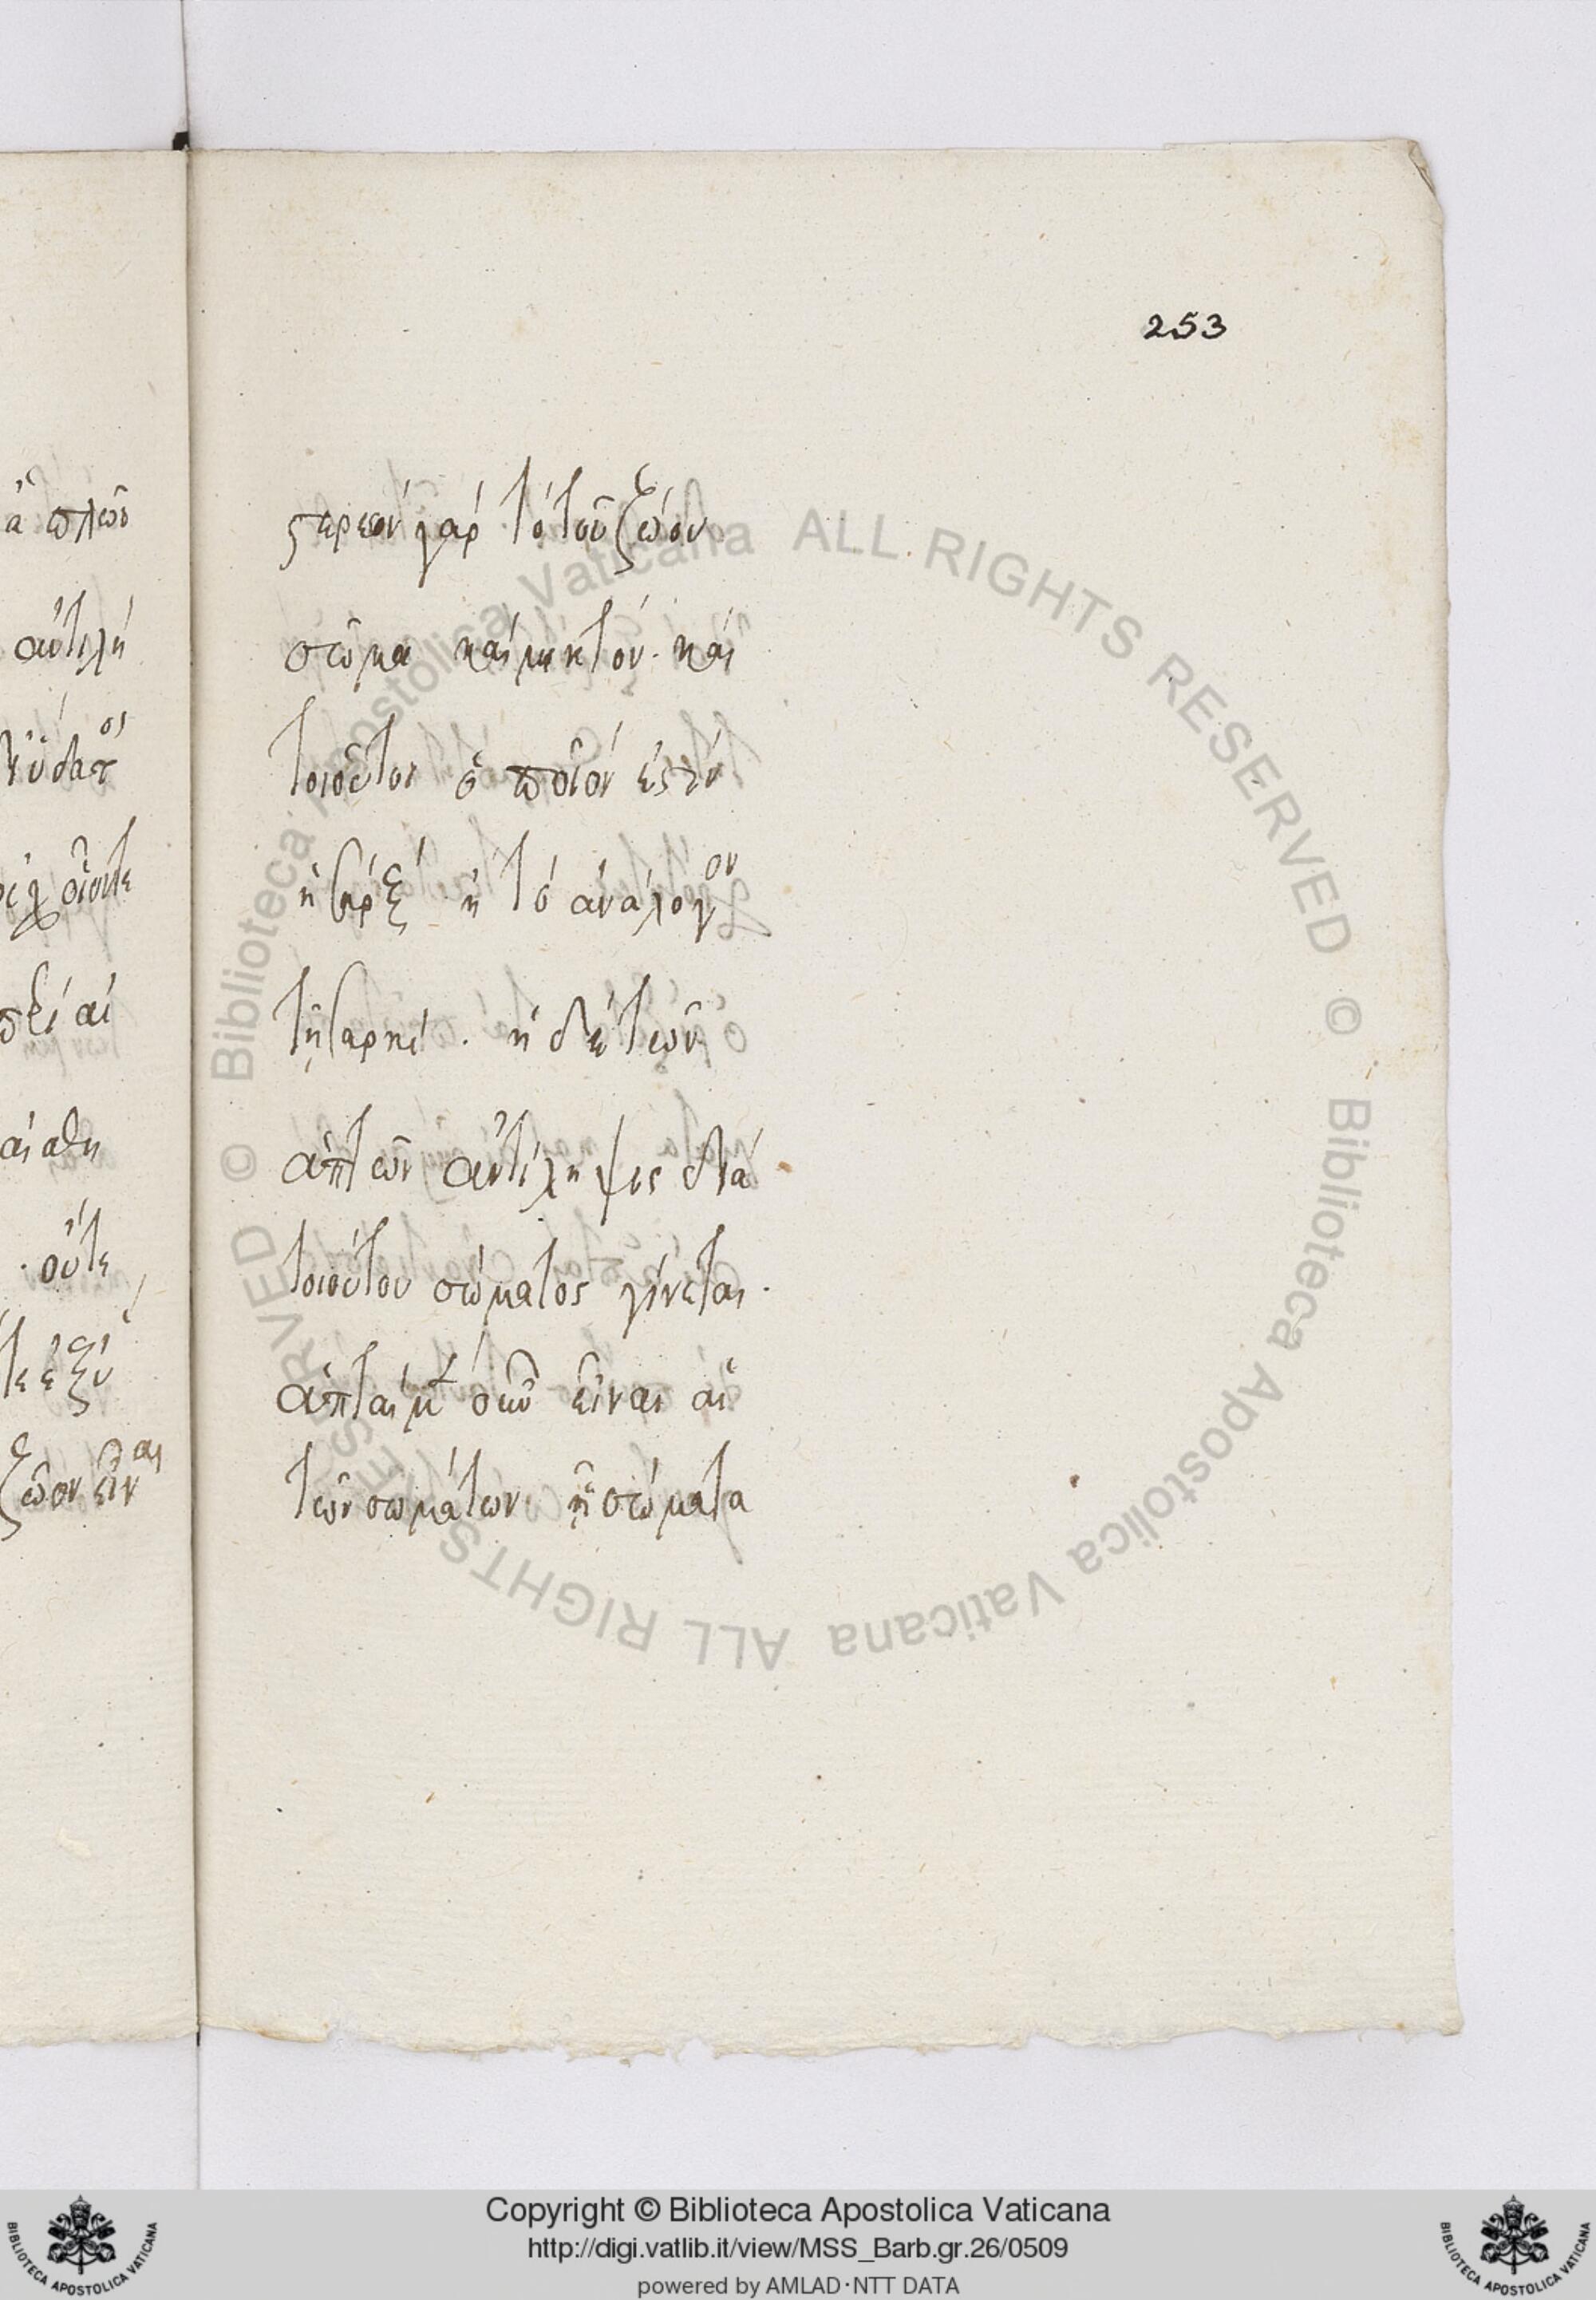 253
στερεὸν γὰρ τὸ τοῦ ζώου
σῶμα καὶ μικτόν. καὶ
τοιοῦτον ὁποῖόν ἐστιν
ἡ σὰρξ ἢ τὸ ἀνάλογον
τῇ σαρκί. ἡ δὲ τῶν
ἁπτῶν ἀντίληψις διὰ
τοιούτου σώματος γίνεται.
ἁπταὶ μὲν οὖν εἶναι αἱ
τῶν σωμάτων ᾗ σώματα
ἁπλῶν
ἀντιλή
ὕδατος
οἷόν τε
αἱ
αἰσθη
. οὔτε
ζῶον εἶναι
© Biblioteca Apostolica Vaticana ALL RIGHTS RESERVED © Biblioteca Apostolica Vaticana ALL RIGHTS RESERVED
Copyright © Biblioteca Apostolica Vaticana
http://digi.vatlib.it/view/MSS_Barb.gr.26/0509
powered by AMLAD·NTT DATA
BIBLIOTECA APOSTOLICA VATICANA
BIBLIOTECA APOSTOLICA VATICANA